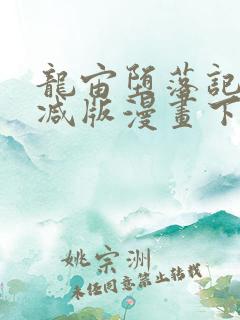 龍宙堕落記
减版漫畫下
姚宗洲
未任同意禁止转载